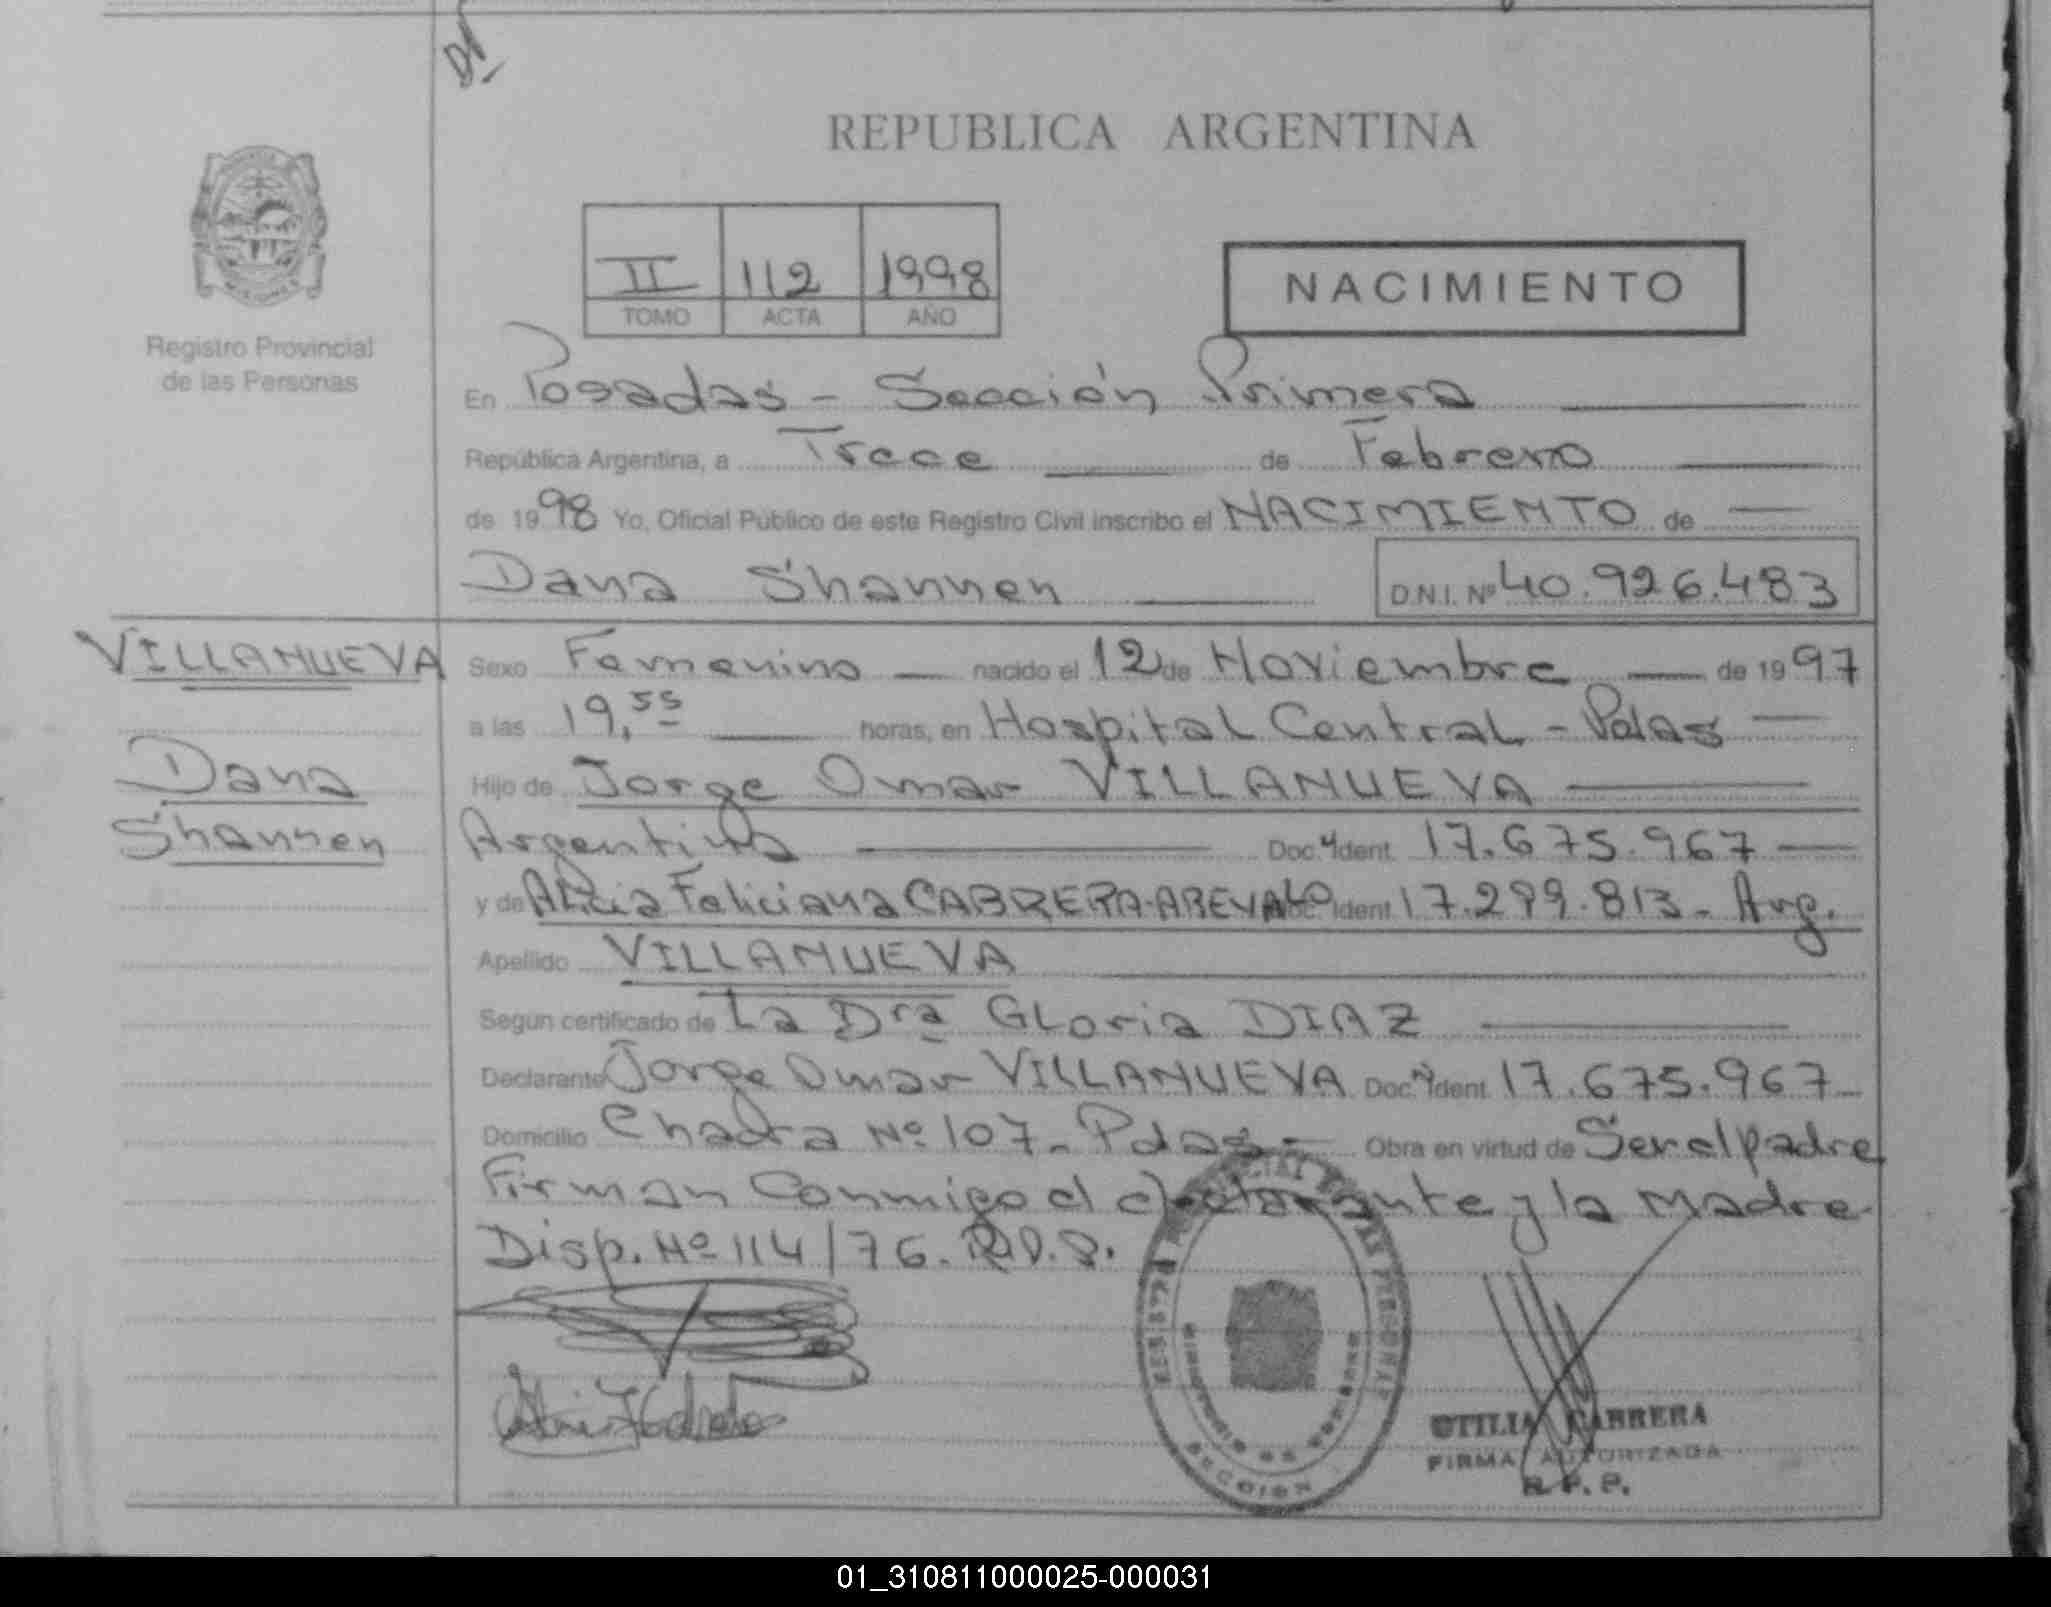 REPUBLICA ARGENTINA
II 112 1998
TOMO ACTA AÑO
NACIMIENTO
MISIONES
Registro Provincial
de las Personas
En Posadas - Sección Primera
República Argentina, a Trece de Febrero
de 1998 Yo, Oficial Público de este Registro Civil inscribo el NACIMIENTO de
Dana Shannen D.N.I. Nº 40.926.483
VILLANUEVA
Dana
Shannen
Sexo Femenino nacido el 12 de Noviembre de 1997
a las 19,55 horas, en Hospital Central - Pdas
Hijo de Jorge Omar VILLANUEVA
Argentina Doc. Ident. 17.675.967
y de Alicia Feliciana CABRERA-AREVALO Doc. Ident. 17.299.813 - Arg.
Apellido VILLANUEVA
Según certificado de La Dra GLoria DIAZ
Declarante Jorge Omar VILLANUEVA Doc. Ident. 17.675.967
Domicilio Chacra Nº 107 - Pdas - Obra en virtud de Ser el padre
Firman Conmigo el declarante y la Madre.
Disp. Nº 114/76.
SECCION
OTILIA CABRERA
FIRMA AUTORIZADA
R. P. P.
01_310811000025-000031